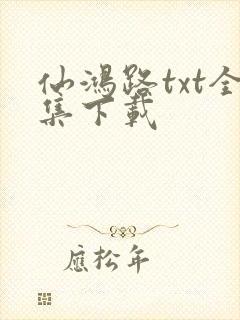 仙鴻路txt全
集下載
應松年